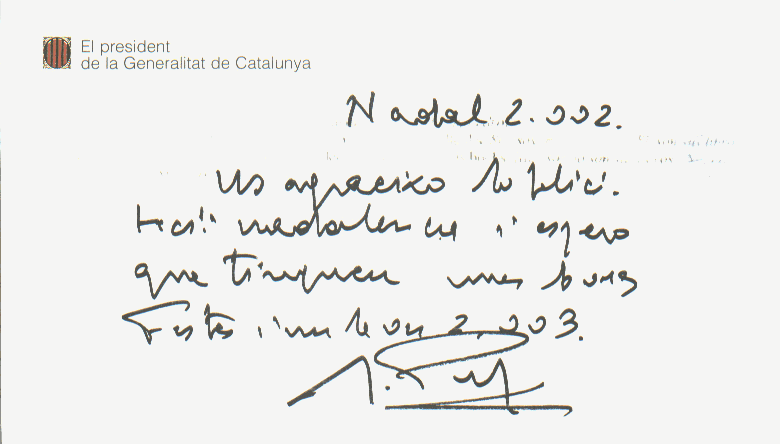 El president
de la Generalitat de Catalunya
Nadal 2.002.
Us agraeixo la felici-
tació nadalenca i espero
que tinguem unes bones
Festes i un bon 2.003.